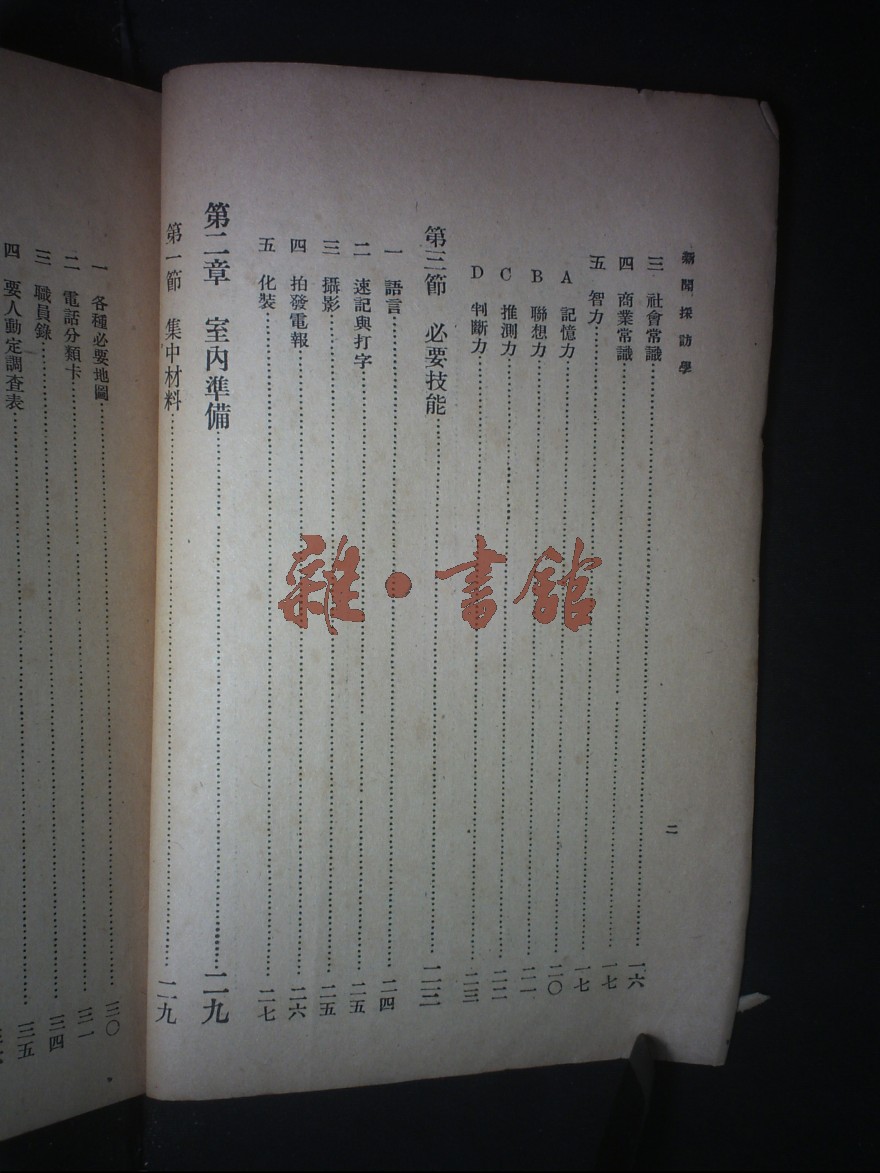 新聞採訪學
二
三 社會常識 一六
四 商業常識 一七
五 智力 一七
A 記憶力 二〇
B 聯想力 二一
C 推測力 二二
D 判斷力 二三
第三節 必要技能 二三
一 語言 二四
二 速記與打字 二五
三 攝影 二五
四 拍發電報 二六
五 化裝 二七
第二章 室內準備 二九
第一節 集中材料 二九
一 各種必要地圖 三〇
二 電話分類卡 三一
三 職員錄 三四
四 要人動定調查表 三五
雜·書館